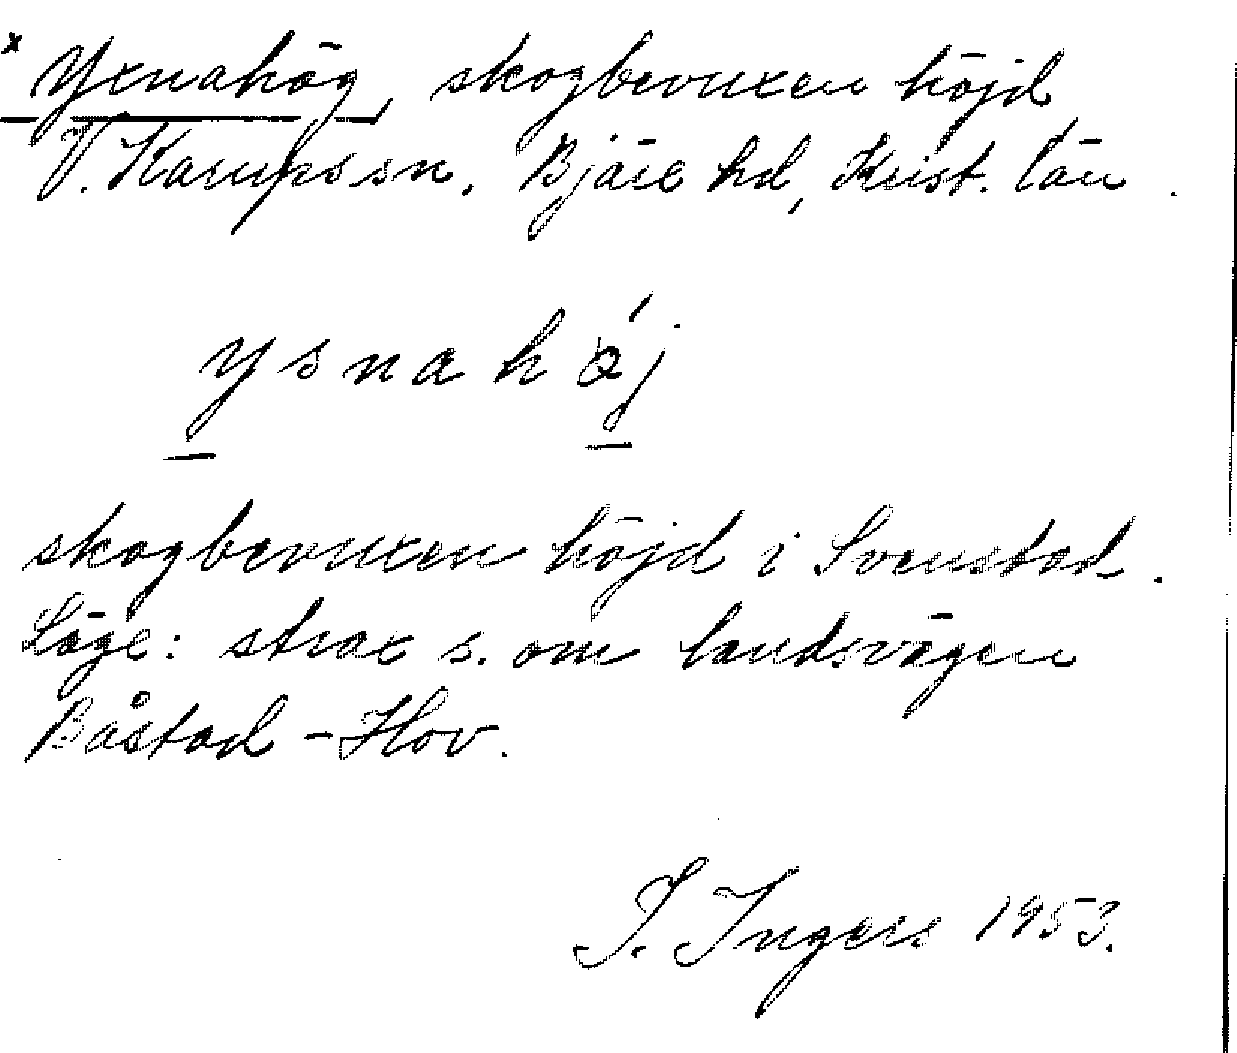 x Yxnahög, skogbevuxen höjd
V. Karups sn. Bjäre hd, Krist. län.
ysnahöj
skogbevuxen höjd i Svenstad.
Läge: strax s. om landsvägen
Båstad – Hov.
I. Ingers 1953.